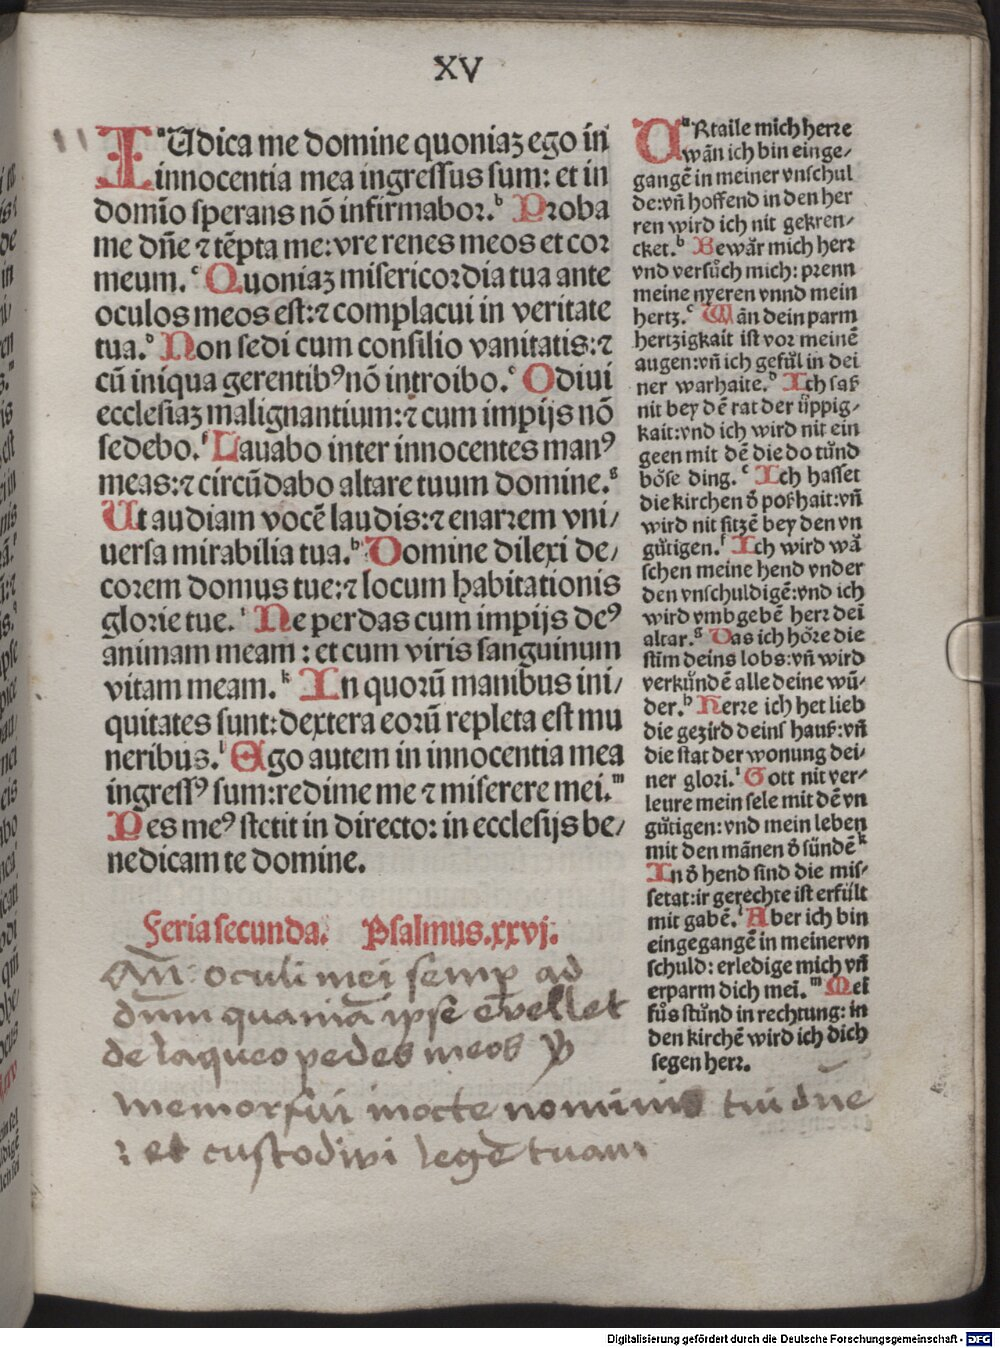 XV
IᵃUdica me domine quoniaʒ ego in
innocentia mea ingressus sum: et in
domīo sperans nō infirmabor.ᵇ Proba
me dn̄e ⁊ tēpta me: vre renes meos et cor
meum.ᶜ Quoniaʒ misericordia tua ante
oculos meos est:⁊ complacui in veritate
tua.ᵈ Non sedi cum consilio vanitatis:⁊
cū iniqua gerentibꝰ nō introibo.ᵉ Odiui
ecclesiaʒ malignantium:⁊ cum impijs nō
sedebo.ᶠ Lauabo inter innocentes manꝰ
meas:⁊ circūdabo altare tuum domine.ᵍ
Ut audiam vocē laudis:⁊ enarrem vni/
uersa mirabilia tua.ʰ Domine dilexi de/
corem domus tue:⁊ locum habitationis
glorie tue.ⁱ Ne perdas cum impijs deꝰ
animam meam : et cum viris sanguinum
vitam meam.ᵏ In quorū manibus ini/
quitates sunt: dextera eorū repleta est mu
neribus.ˡ Ego autem in innocentia mea
ingressꝰ sum: redime me ⁊ miserere mei.ᵐ
Pes meꝰ stetit in directo: in ecclesijs be/
nedicam te domine.
Feria secunda. Psalmus.xxvj.
An̄: oculi mei semꝑ ad
dn̄um quaniā ipse ēvellet
de laqueo pedes meos
memor fui inocte nominis tui dn̄e
: et custodivi legē tuam
UᵃRtaile mich herre
wān ich bin einge/
gangē in meiner vnschul
de: vn̄ hoffend in den her
ren wird ich nit gekren/
cket.ᵇ Bewǎr mich herr
vnd versůch mich: prenn
meine nyeren vnnd mein
hertz.ᶜ Wān dein parm
hertzigkait ist vor meinē
augen: vn̄ ich gefůl in dei
ner warhaite.ᵈ Ich saß
nit bey dē rat der ůppig/
kait: vnd ich wird nit ein
geen mit dē die do tůnd
bőse ding.ᵉ Ich hasset
die kirchen ō poßhait: vn̄
wird nit sitzē bey den vn
gůtigen.ᶠ Ich wird wǎ
schen meine hend vnder
den vnschuldigē: vnd ich
wird vmbgebē herr dei̅
altar.ᵍ Das ich hőre die
stīm deins lobs: vn̄ wird
verkůndē alle deine wů/
der.ʰ Herre ich het lieb
die gezird deins hauß: vn̄
die stat der wonung dei/
ner glori.ⁱ Gott nit ver/
leure mein sele mit dē vn
gůtigen: vnd mein leben
mit den mānen ō sündēᵏ
In ō hend sind die mis/
setat: ir gerechte ist erfült
mit gabē.ˡ Aber ich bin
eingegangē in meiner vn
schuld: erledige mich vn̄
erparm dich mei.ᵐ Mei
fůs stůnd in rechtung: in
den kirchē wird ich dich
segen herr.
Digitalisierung gefördert durch die Deutsche Forschungsgemeinschaft - DFG